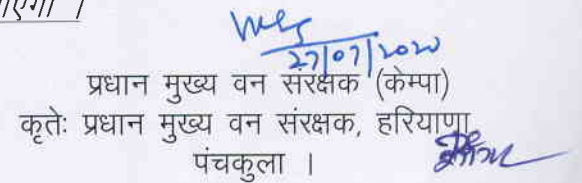 जाएगा ।
27/07/2020
प्रधान मुख्य वन संरक्षक (केम्पा)
कृतेः प्रधान मुख्य वन संरक्षक, हरियाणा
पंचकुला ।